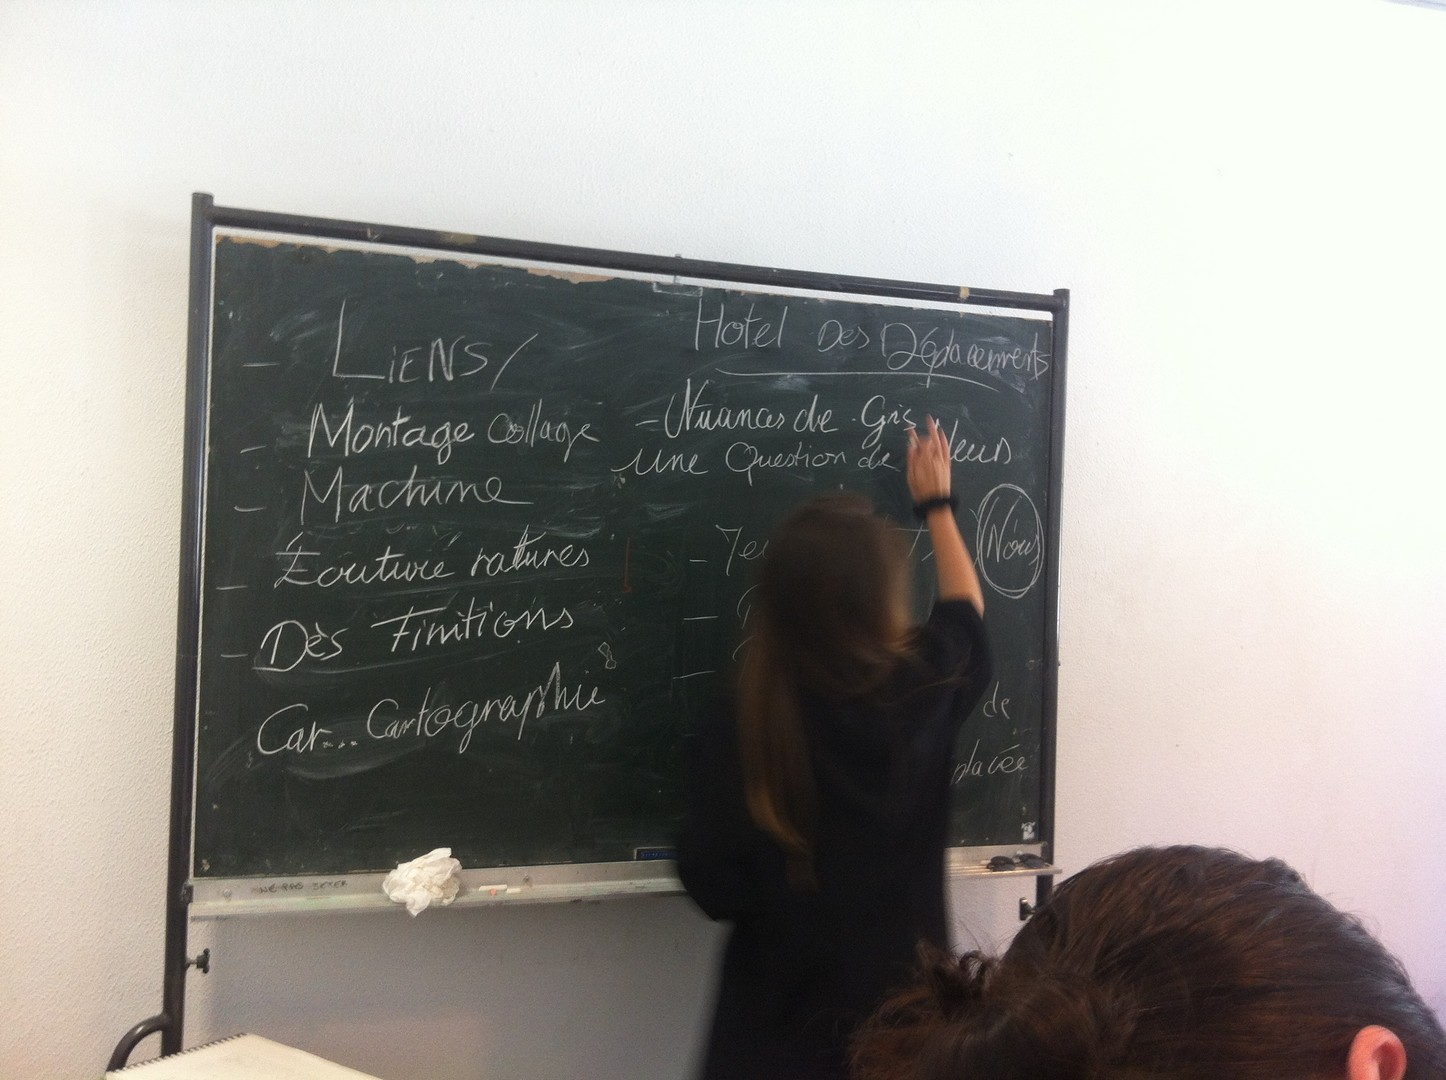 - LiENS/
- Montage Collage
- Machine
- Écriture ratures
- Dès Finitions
Car... Cartographie
Hotel Des Déplacements
- Nuances de Gris
une Question de
- Jeu
Nous
-
-
de
placée